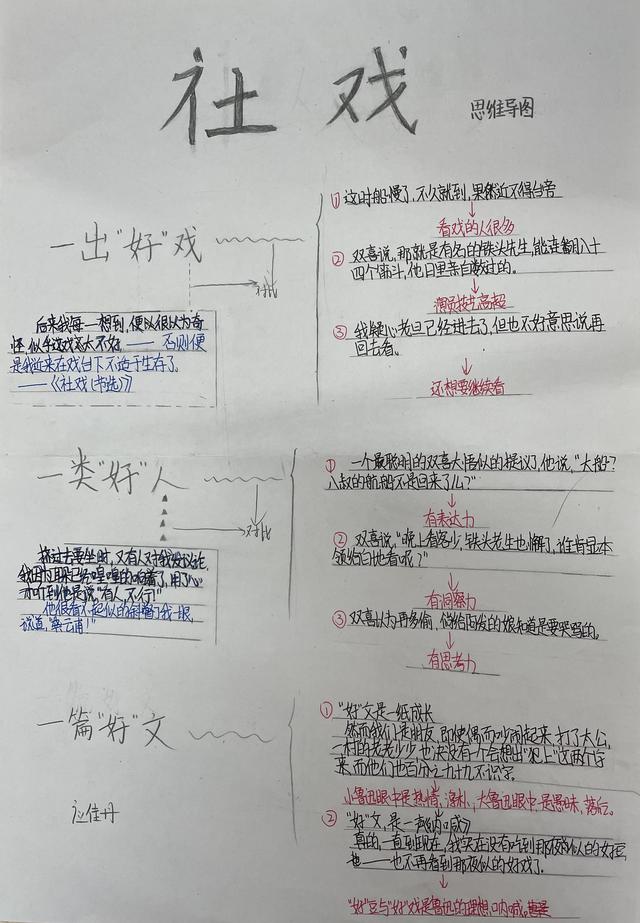 社戏
思维导图
一出"好"戏
对比
后来我每一想到,便以很以为奇
怪,似乎这戏太不好,——否则便
是我近来在戏台下不适于生存了。
——《社戏(节选)》
①这时船慢了,不久就到,果然近不得台旁
看戏的人很多
②双喜说,那就是有名的铁头老生,能连翻八十
四个筋斗,他日里亲自数过的。
演员技艺高超
③我疑心老旦已经进去了,但也不好意思说再
回去看。
还想要继续看
一类"好"人
对比
挤过去要坐时,又有人对我发议论,
我因为耳朵已经喤喤的响着了,用了心
才听到他是说"有人,不行!"
他很看不起似的斜瞥了我一眼,
说道,"龚云甫!"
①一个最聪明的双喜大悟似的提议了,他说,"大船?
八叔的航船不是回来了么?"
有表达力
②双喜说,"晚上看客少,铁头老生也懈了,谁肯显本
领给白地看呢?"
有洞察力
③双喜以为再多偷,倘给阿发的娘知道是要哭骂的。
有思考力
一篇"好"文
应佳丹
①"好"文是一纸成长
然而我们是朋友,即使偶而吵闹起来,打了太公,
一村的老老少少,也决没有一个会想出"犯上"这两个字
来,而他们也百分之九十九不识字。
小鲁迅眼中是热情、淳朴,大鲁迅眼中,是愚昧,落后。
②"好"文,是一声《呐喊》
真的,一直到现在,我实在没有吃到那夜似的好豆,
——也不再看到那夜似的好戏了。
"好"豆与"好"戏是鲁迅的理想,呐喊。